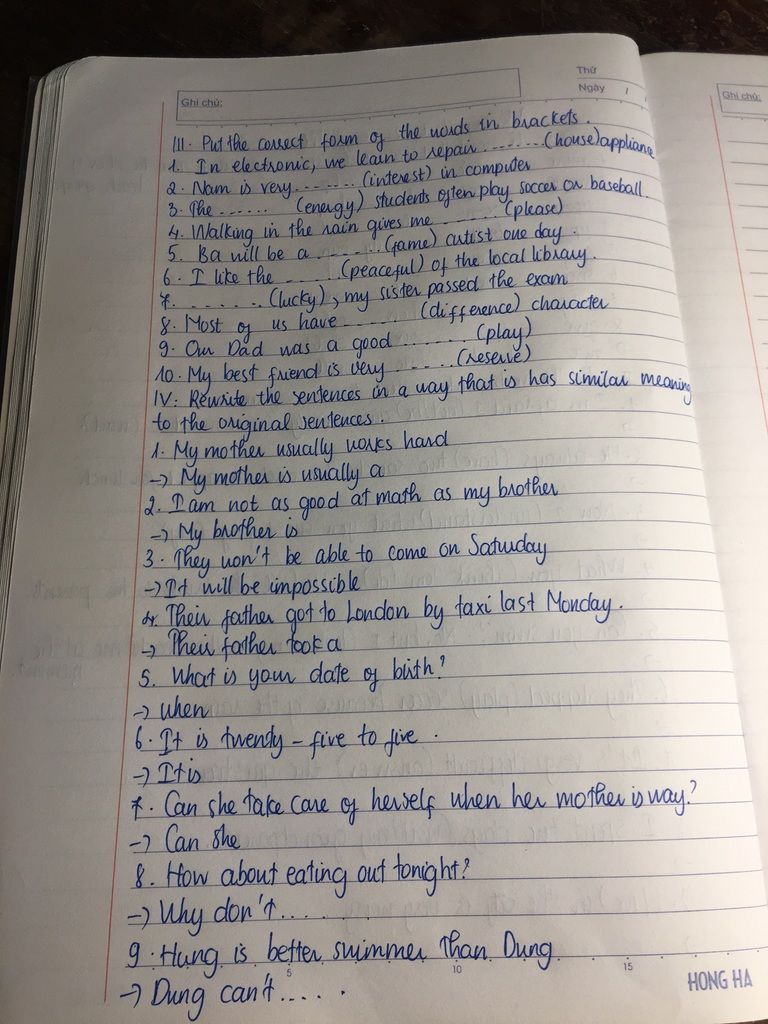 Thứ
Ngày /
Ghi chú:
Ghi chú:
III. Put the correct form of the words in brackets.
1. In electronic, we learn to repair ........ (house) appliance
2. Nam is very ....... (interest) in computer
3. The ...... (energy) students often play soccer or baseball.
4. Walking in the rain gives me ....... (please)
5. Ba will be a ....... (fame) artist one day.
6. I like the ...... (peaceful) of the local library.
7. ....... (lucky), my sister passed the exam
8. Most of us have ....... (difference) character
9. Our Dad was a good ....... (play)
10. My best friend is very ..... (reserve)
IV: Rewrite the sentences in a way that is has similar meaning
to the original sentences.
1. My mother usually works hard
-> My mother is usually a
2. I am not as good at math as my brother
-> My brother is
3. They won't be able to come on Saturday
-> It will be impossible
4. Their father got to London by taxi last Monday.
-> Their father took a
5. What is your date of birth?
-> when
6. It is twendy - five to five.
-> It is
7. Can she take care of herself when her mother is way?
-> Can she
8. How about eating out tonight?
-> Why don't.........
9. Hung is better swimmer than Dung
-> Dung can't.....
5 10 15
HONG HA